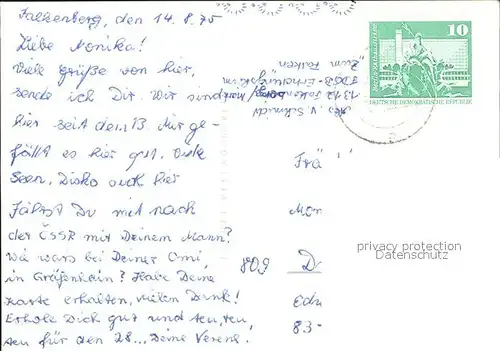 Falkenberg, den 14.8.75
Liebe Monika!
Viele Grüße von hier,
sende ich Dir. Wir sind
hier seit den 13. Mir ge-
fällt es hier gut. Viele
Seen, Disko auch hier
Fährst Du mit nach
der ČSSR mit Deinem Mann?
Wie war's bei Deiner Omi
in Gräfenhain? Habe Deine
Karte erhalten, vielen Dank!
Erhole Dich gut und
für den 28... Deine Verena.
Abs. V. Schmidt
1313 Falkenberg/Mark
FDGB-Erholungsheim
"Zum Falken"
10
DEUTSCHE DEMOKRATISCHE REPUBLIK
Frä
Mon
809 D
83-
privacy protection
Datenschutz